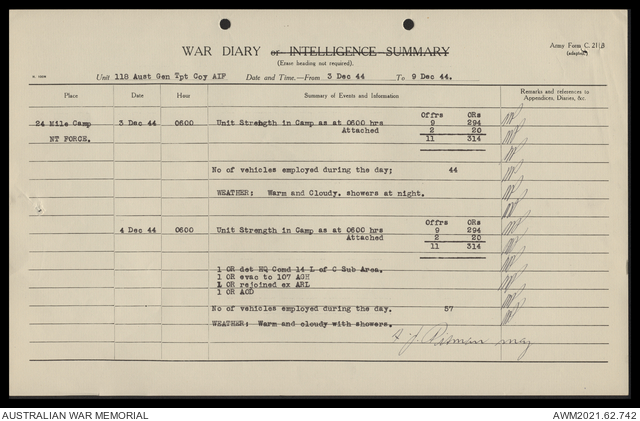 WAR DIARY or INTELLIGENCE SUMMARY
(Erase heading not required).
Army Form C. 2118
(adapted)
Unit 118 Aust Gen Tpt Coy AIF Date and Time.—From 3 Dec 44 To 9 Dec 44.
Place Date Hour Summary of Events and Information Remarks and references to Appendices, Diaries, &c.
Offrs ORs
24 Mile Camp 3 Dec 44 0600 Unit Strength in Camp as at 0600 hrs 9 294
NT FORCE. Attached 2 20
11 314
No of vehicles employed during the day; 44
WEATHER; Warm and Cloudy, showers at night.
Offrs ORs
4 Dec 44 0600 Unit Strength in Camp as at 0600 hrs 9 294
Attached 2 20
11 314
1 OR det HQ Comd 14 L of C Sub Area.
1 OR evac to 107 AGH
1 OR rejoined ex ARL
1 OR AOD
No of vehicles employed during the day. 57
WEATHER; Warm and cloudy with showers.
Maj
AUSTRALIAN WAR MEMORIAL AWM2021.62.742